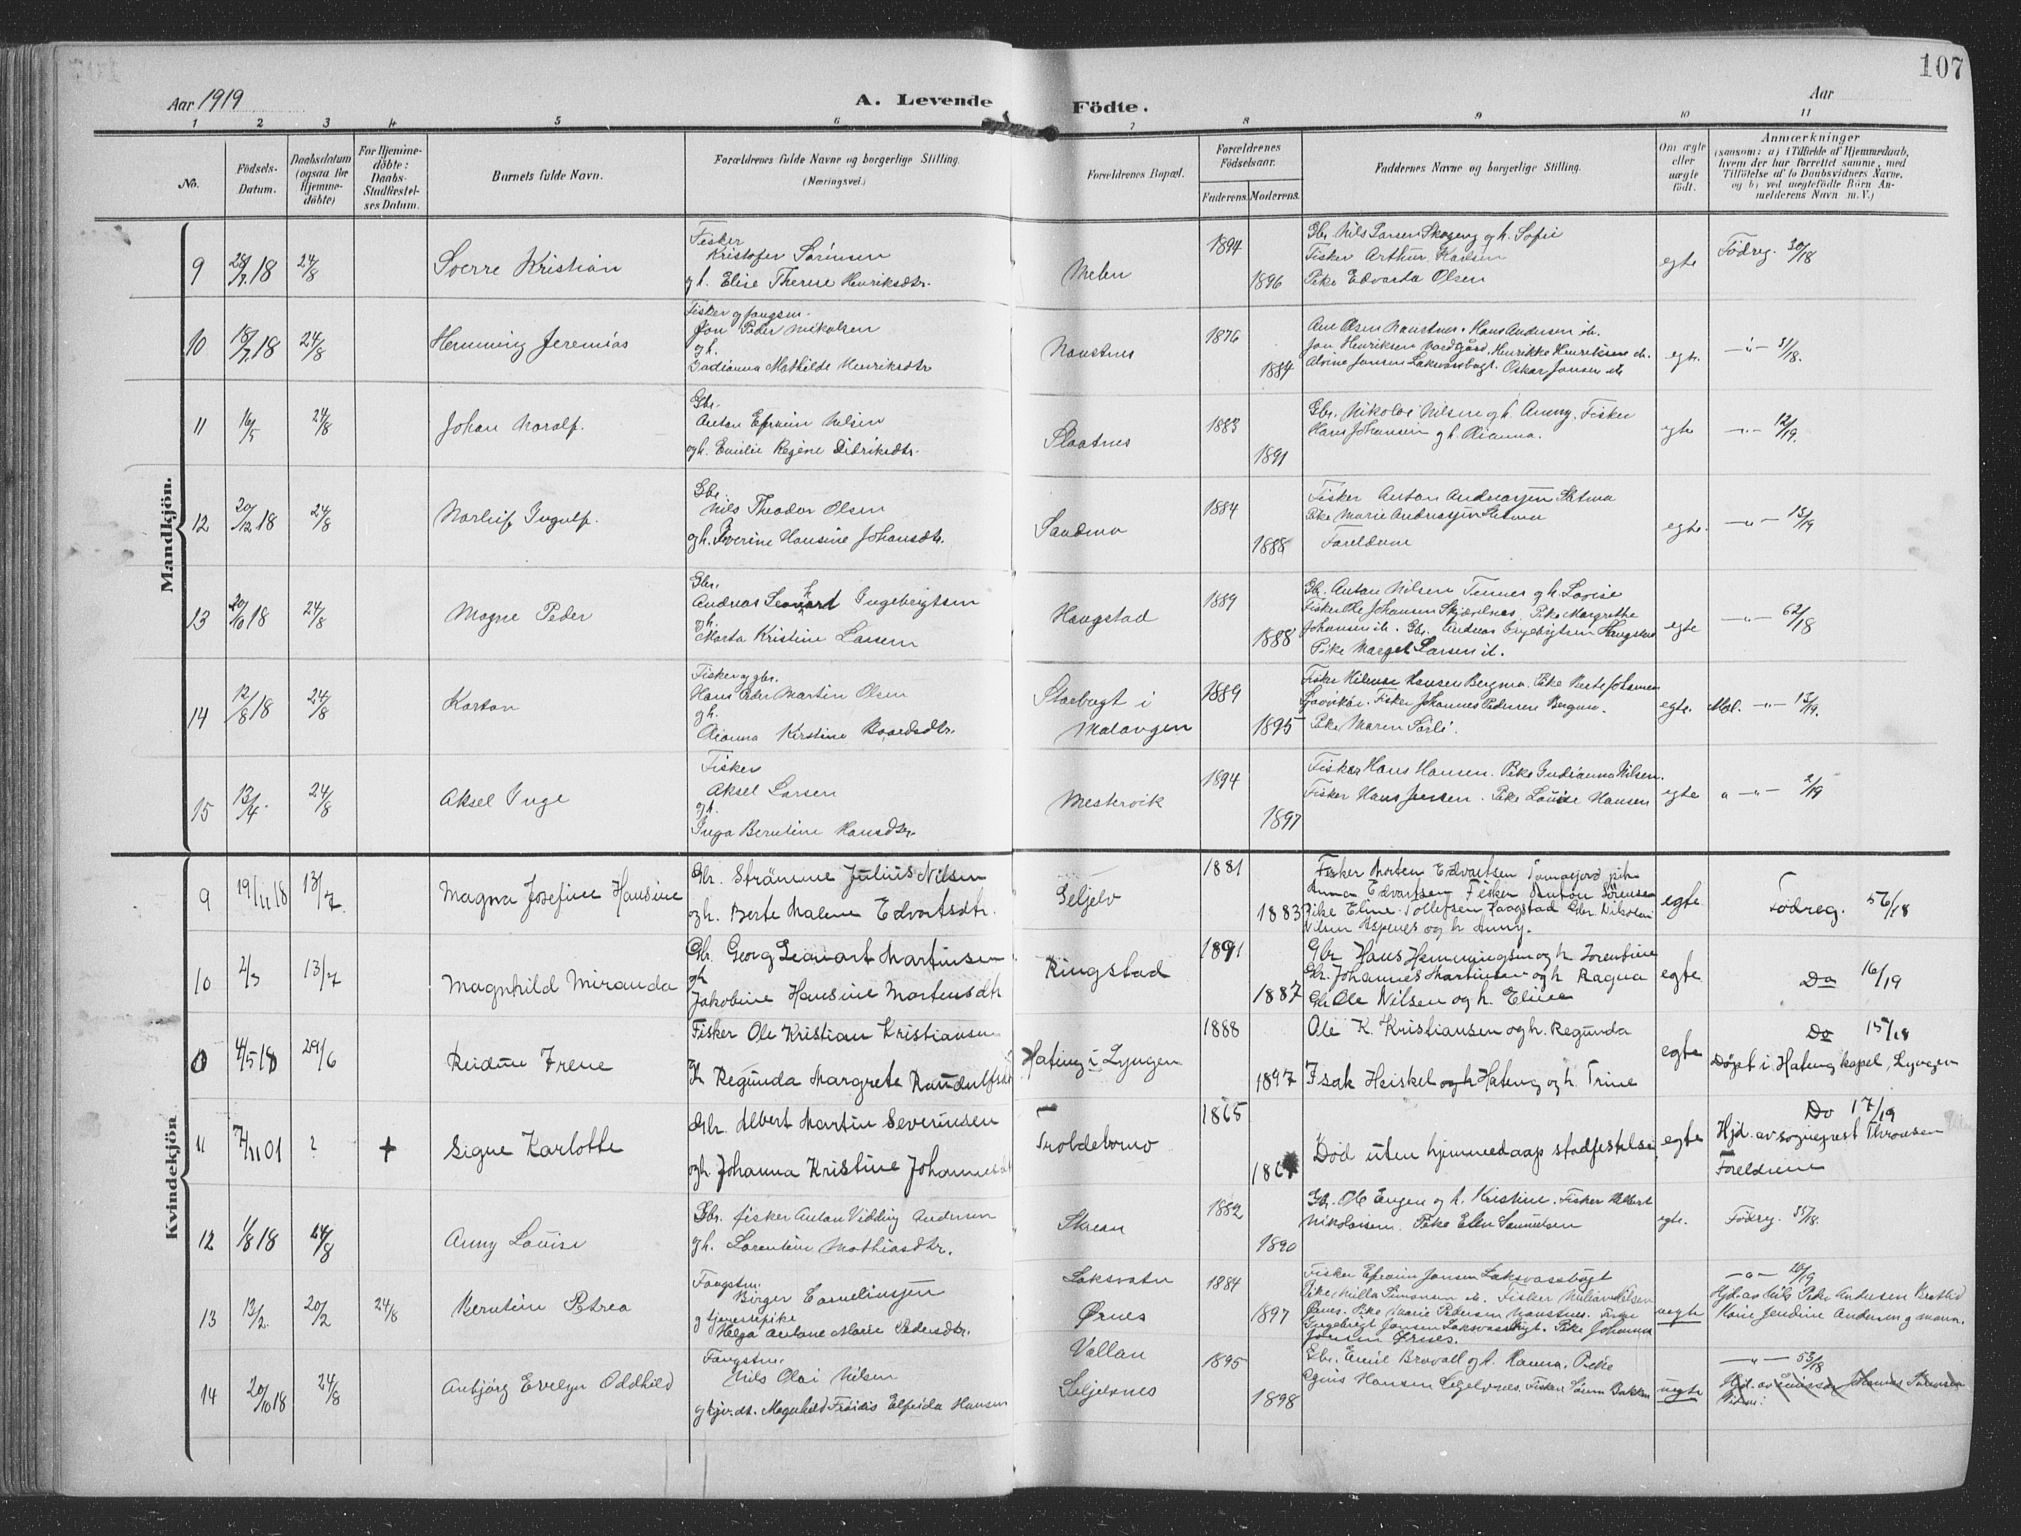 107
Aar 1919
A. Levende Födte.
Aar
1 2 3 4 5 6 7 8 9 10 11
No.
Födsels-Datum.
Daabsdatum (ogsaa for Hjemme-döbte)
For Hjemme-döbte: Daabs-Stadfæstel-ses Datum.
Barnets fulde Navn.
Forældrenes fulde Navne og borgerlige Stilling.
(Næringsvei.)
Forældrenes Bopæl.
Forældrenes Födselsaar.
Faderens. Moderens.
Faddernes Navne og borgerlige Stilling.
Om ægte eller uægte födt.
Anmærkninger
(saasom: a) i Tilfælde af Hjemmedaab,
hvem der har forrettet samme, med
Tilföielse af to Daabsvidners Navne.
og b) ved uægtefödte Börn An-
melderens Navn m. V.)
Mandkjön.
9 28/7 18 24/8 Sverre Kristian
Fisker
Kristofer Sörensen
gh. Elise Therese Henriksdtr.
Melen 1894 1896
Gbr. Nils Larsen Skogeng gh. Sofie
Fisker Arthur Karlsen
Pike Edvarda Olsen
egte Födreg. 30/18
10 18/7 18 24/8 Hemming Jeremias
Fisker g fangsm.
Jon Peder Mikalsen
gh.
Indianna Mathilde Henriksdtr
Naustnes 1876 1884
Ane Olsen Naustnes. Hans Andersen ib.
Jon Henriksen Nordgård. Henrikke Henriksen ib.
Alvine Jensen Laksvassbugt. Oskar Jensen ib
egt. —"— 31/18.
11 16/5 24/8 Johan Noralf.
Gbr.
Anton Efraim Nilsen
ogh. Emilie Regine Didriksdtr.
Slaatnes 1883 1891
Gbr. Nikolai Nilsen gh. Anny. Fisker
Hans Johansen gh. Oianna.
egte —"— 12/19.
12 20/12 18 24/8 Norleif Ingulf.
Gbr.
Nils Theodor Olsen
gh. Severine Hansine Johansdtr.
Sandmo 1884 1888
Fisker Anton Andreassen Satma
Pike Marie Andreassen Satma
Foreldrene
egte. —"— 13/19
13 20/10 18 24/8 Magne Peder
Gbr.
Andreas Lenhart Ingebrigtsen
gh.
Marta Kristine Larsen
Haugstad 1889 1888
Gbr. Anton Nilsen Tennes gh. Lovise
Fisker Ole Johansen Skjævelnes, Pike Margrethe
Johansen ib. Gbr. Andreas Ingebrigtsen Haugstad
Pike Marget Larsen ib.
egte —"— 62/18
14 12/8 18 24/8 Karstan
Fisker g gbr.
Hans Peder Martin Olsen
gh.
Oianna Kerstine Baardsdtr.
Storbugt i Malangen 1889 1895
Fisker Hilmar Hansen Bergmo. Pike Berte Johansen
Fisker Johannes Pedersen Bergmo.
Pike Maren Sörli.
egte. Mal. —"— 13/19.
15 13/4 24/8 Aksel Inge
Fisker
Aksel Larsen
gh.
Inga Berntine Hansdtr.
Mestervik 1894 1897
Fisker Hans Hansen. Pike Indianna Nilsen.
Fisker Hans Jensen. Pike Louise Hansen
egte " —"— 2/19
Kvindekjön
9 19/11 18 13/7. Magna Josefine Hansine
Gbr. Strömme Julius Nilsen
ogh. Berte Malene Edvartsdtr.
Seljelv 1881 1883
Fisker Morten Edvartsen Tomasjord pik
Anna Edvartsen Fisker Anton Sörensen
Pike Eline Tollefsen Haagstad Gbr. Nikolai
Nilsen Aspenes og h Anny.
egte Födreg. 56/18
10 2/3 13/7 Magnhild Miranda
Gbr. Georg Lenart Martinsen
gh
Jakobine Hansine Mortensdtr
Kingstad 1891 1887
Gbr Hans Hemmingsen og h Lorentine
Gbr. Johannes Martinsen og h Ragna
Gbr Ole Nilsen og h. Eline
egte Do 16/19
0 4/5 18 29/6 Reidun Irene
Fisker Ole Kristian Kristiansen
H Regunda Margrete Raudulfsdt
Hateng i Lyngen 1888 1897
Ole K. Kristiansen og h. Regunda
Isak Heiskel og h Hateng og h. Trine
egte Do 15/18
Døpt i Hateng kapel, Lyngen
11 7/11 01 ? + Signe Karlotte
Gbr. Albert Martin Severinsen
ogh Johanna Kristine Johannesdt
Troldebornvo 1865
Död uten hjemmedaap stadfestelse
egte Do 17/19
Hjd. av sogneprest Thronsen
Foreldrene
12 1/8 18 24/8 Anny Louise
Gbr. fisker Anton Vidding Andersen
gh. Lorentine Mathiasdtr.
Skraan 1882 1890
Gbr. Ole Engen og h. Kristine. Fisker Albert
Nikolaisen. Pike Elen Samuelsen
egte. Födreg. 55/18.
13 13/2. 20/2 24/8 Berntine Petrea
Fangstm.
Birger Cornelinssen
g tjenestepike
Helga Antone Marie Pedersdtr.
Laksvatn
Örnes 1884 1897
Fisker Efraim Jensen Laksvassbugt
Pike Milla Simonsen ib. Fisker Julian Nilsen
Örnes. Pike Marie Pedersen Naustnes. Fisker
Ingebrigt Jensen Laksvassbugt. Pike Johanna
Jensen Örnes.
uegte —"— 20/19
Hjd. av Nils Peter Andersen
Karie Jendine Andersen g mann.
14 20/10 18 24/8 Anbjörg Evelyn Oddhild
Fangstm.
Nils Olai Nilsen
g tjv. dt. Magnhild Fröidis Elfrida Hansen
Vollan
Seljelvnes 1895 1898
Gbr. Emil Bravoll g h. Hanna. Pike
Agnes Hansen Seljelvnes. Fisker Sören Bakken
uegte —"— 53/18